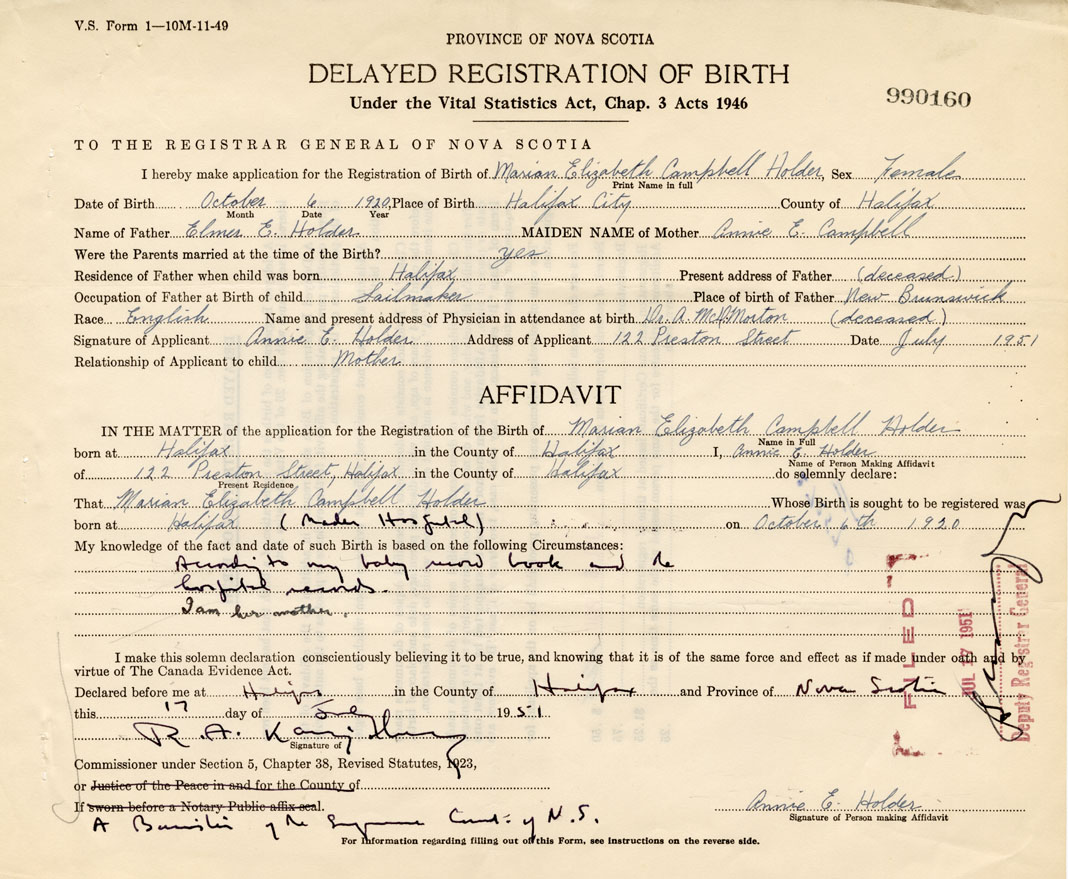 V.S. Form 1—10M-11-49
PROVINCE OF NOVA SCOTIA
DELAYED REGISTRATION OF BIRTH
990160
Under the Vital Statistics Act, Chap. 3 Acts 1946
TO THE REGISTRAR GENERAL OF NOVA SCOTIA
I hereby make application for the Registration of Birth of Marian Elizabeth Campbell Holder, Sex Female
Print Name in full
Date of Birth October 6 1920, Place of Birth Halifax City County of Halifax
Month Date Year
Name of Father Elmer E. Holder MAIDEN NAME of Mother Annie E. Campbell
Were the Parents married at the time of the Birth? yes
Residence of Father when child was born Halifax Present address of Father (deceased)
Occupation of Father at Birth of child Sailmaker Place of birth of Father New Brunswick
Race English Name and present address of Physician in attendance at birth Dr. A. McD Morton (deceased)
Signature of Applicant Annie E. Holder Address of Applicant 122 Preston Street Date July 1951
Relationship of Applicant to child Mother
AFFIDAVIT
IN THE MATTER of the application for the Registration of the Birth of Marian Elizabeth Campbell Holder
Name in Full
born at Halifax in the County of Halifax I, Annie E. Holder
Name of Person Making Affidavit
of 122 Preston Street, Halifax in the County of Halifax do solemnly declare:
Present Residence
That Marian Elizabeth Campbell Holder Whose Birth is sought to be registered was
born at Halifax ( Hospital) on October 6th 1920
My knowledge of the fact and date of such Birth is based on the following Circumstances:
According to my baby record book and the
hospital records.
I am her mother.
I make this solemn declaration conscientiously believing it to be true, and knowing that it is of the same force and effect as if made under oath and by
virtue of The Canada Evidence Act.
Declared before me at Halifax in the County of Halifax and Province of Nova Scotia
this 17 day of July 1951
R. A.
Signature of
Commissioner under Section 5, Chapter 38, Revised Statutes, 1923,
or Justice of the Peace in and for the County of
If sworn before a Notary Public affix seal.
A Barrister of the Supreme Court of N.S.
Annie E. Holder
Signature of Person making Affidavit
For Information regarding filling out of this Form, see instructions on the reverse side.
FILED
JUL 17 1951
Deputy Registrar General